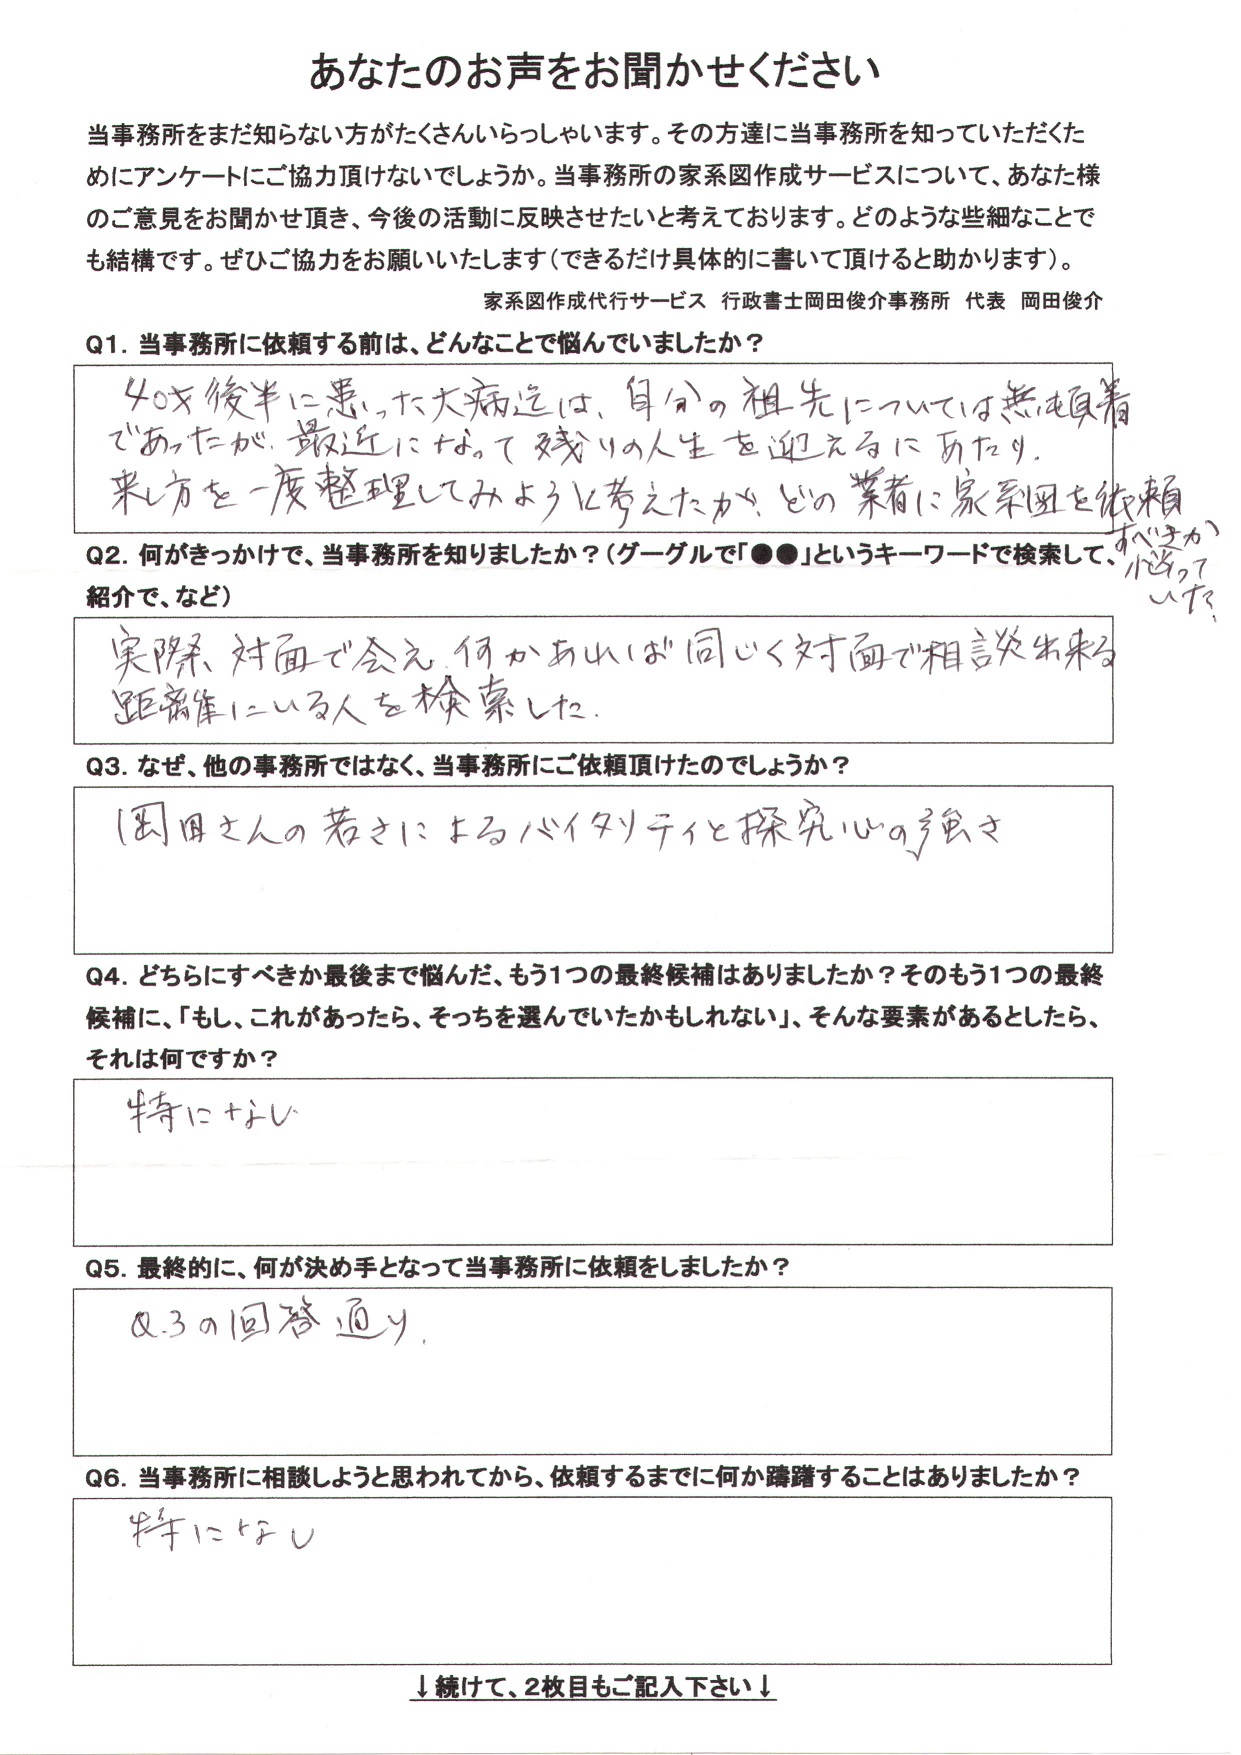 あなたのお声をお聞かせください
当事務所をまだ知らない方がたくさんいらっしゃいます。その方達に当事務所を知っていただくた
めにアンケートにご協力頂けないでしょうか。当事務所の家系図作成サービスについて、あなた様
のご意見をお聞かせ頂き、今後の活動に反映させたいと考えております。どのような些細なことで
も結構です。ぜひご協力をお願いいたします（できるだけ具体的に書いて頂けると助かります）。
家系図作成代行サービス　行政書士岡田俊介事務所　代表　岡田俊介
Q1．当事務所に依頼する前は、どんなことで悩んでいましたか？
40才後半に患った大病迄は、自分の祖先については無頓着
であったが、最近になって残りの人生を迎えるにあたり、
来し方を一度整理してみように考えたが、どの業者に家系図を依頼
すべきか
悩って
いた。
Q2．何がきっかけで、当事務所を知りましたか？（グーグルで「●●」というキーワードで検索して、
紹介で、など）
実際、対面で会え、何かあれば同じく対面で相談出来る
距離にいる人を検索した.
Q3．なぜ、他の事務所ではなく、当事務所にご依頼頂けたのでしょうか？
岡田さんの若さによるバイタリティと探究心の強さ
Q4．どちらにすべきか最後まで悩んだ、もう1つの最終候補はありましたか？そのもう1つの最終
候補に、「もし、これがあったら、そっちを選んでいたかもしれない」、そんな要素があるとしたら、
それは何ですか？
特になし
Q5．最終的に、何が決め手となって当事務所に依頼をしましたか？
Q.3の回答通り.
Q6．当事務所に相談しようと思われてから、依頼するまでに何か躊躇することはありましたか？
特になし
↓続けて、2枚目もご記入下さい↓